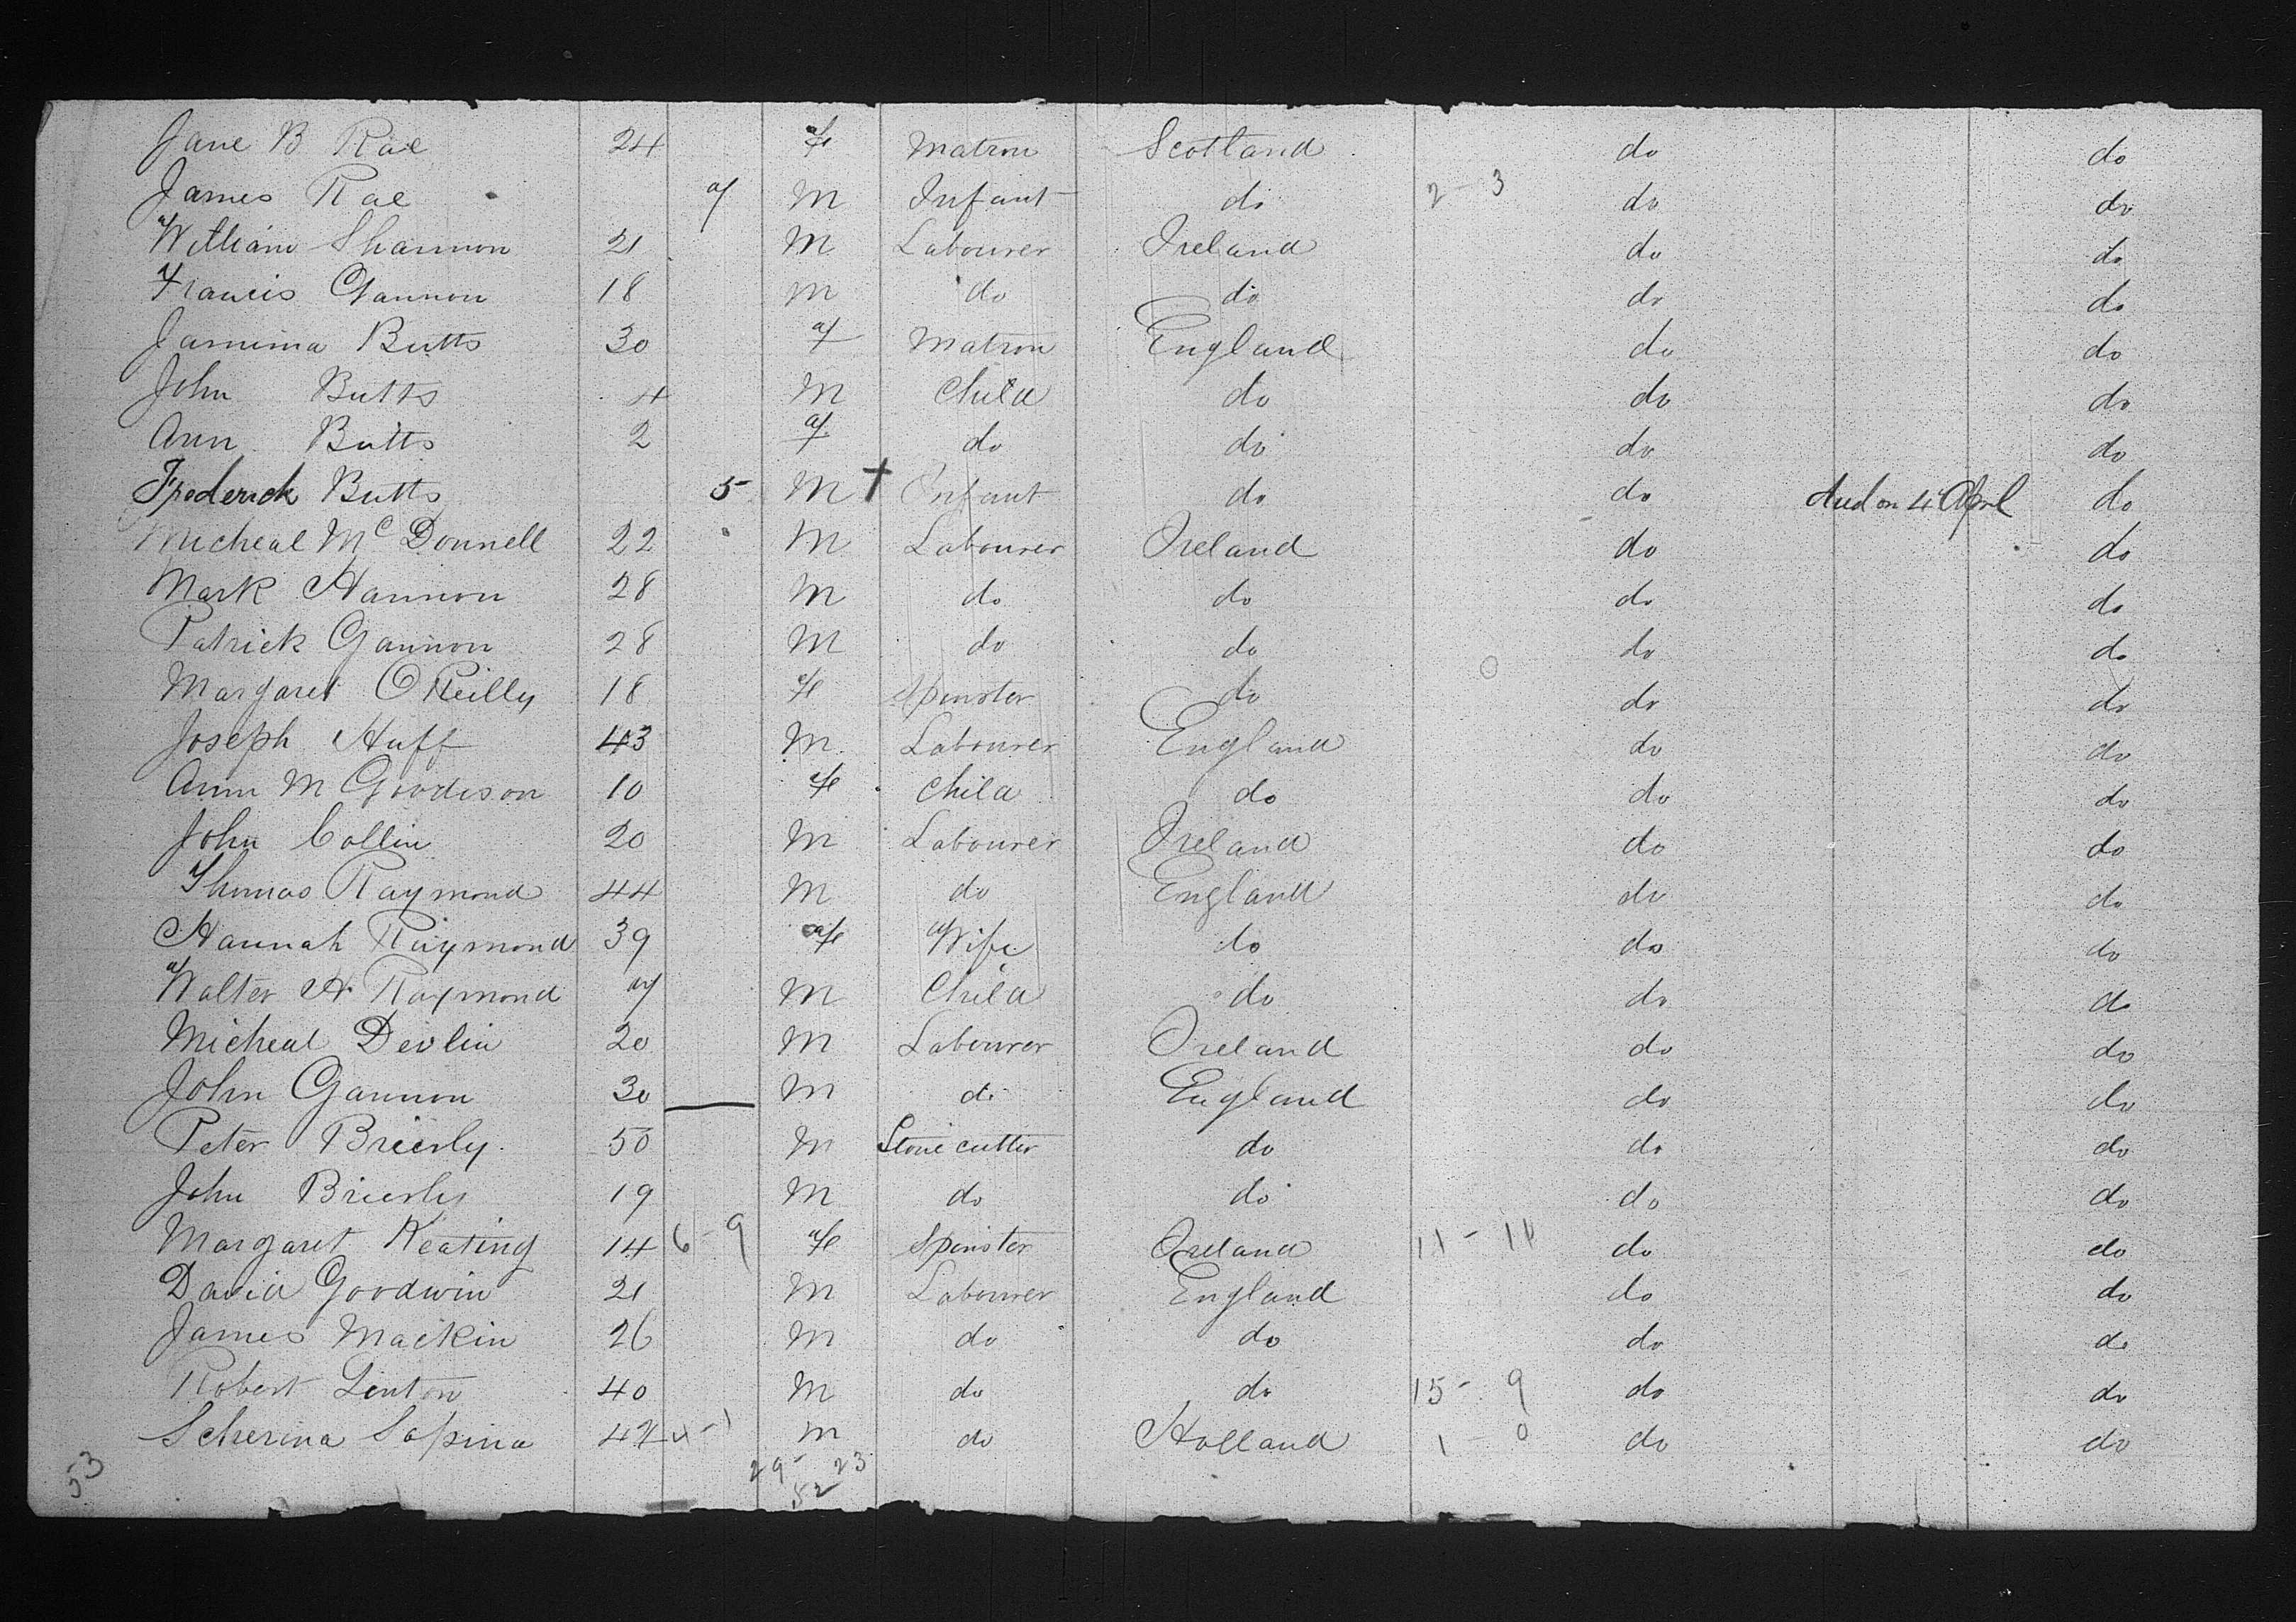 Jane B Rae 24 f Matron Scotland do do
James Rae 7 M Infant do 2-3 do do
William Shannon 21 M Labourer Ireland do do
Francis Gannon 18 M do do do do
Jamima Butts 30 f Matron England do do
John Butts 4 M Child do do do
Ann Butts 2 f do do do do
Frederick Butts 5 M † Infant do do died on 4 April do
Micheal McDonnell 22 M Labourer Ireland do do
Mark Hannon 28 M do do do do
Patrick Gannon 28 M do do do do
Margaret O Reilly 18 f Spinster do do do
Joseph Huff 43 M Labourer England do do
Ann M Goodison 10 f Child do do do
John Collin 20 M Labourer Ireland do do
Thomas Raymond 44 M do England do do
Hannah Raymond 39 f Wife do do do
Walter H Raymond 7 M Child do do do
Micheal Devlin 20 M Labourer Ireland do do
John Gannon 30 M do England do do
Peter Brierly 50 M Stone cutter do do do
John Brierly 19 M do do do do
Margaret Keating 14 6-9 f Spinster Ireland 11-11 do do
David Goodwin 21 M Labourer England do do
James Mackin 26 M do do do do
Robert Linton 40 M do do 15-9 do do
Scherina Sopina 4-1 M do Holland 1-0 do do
29-23
52
53